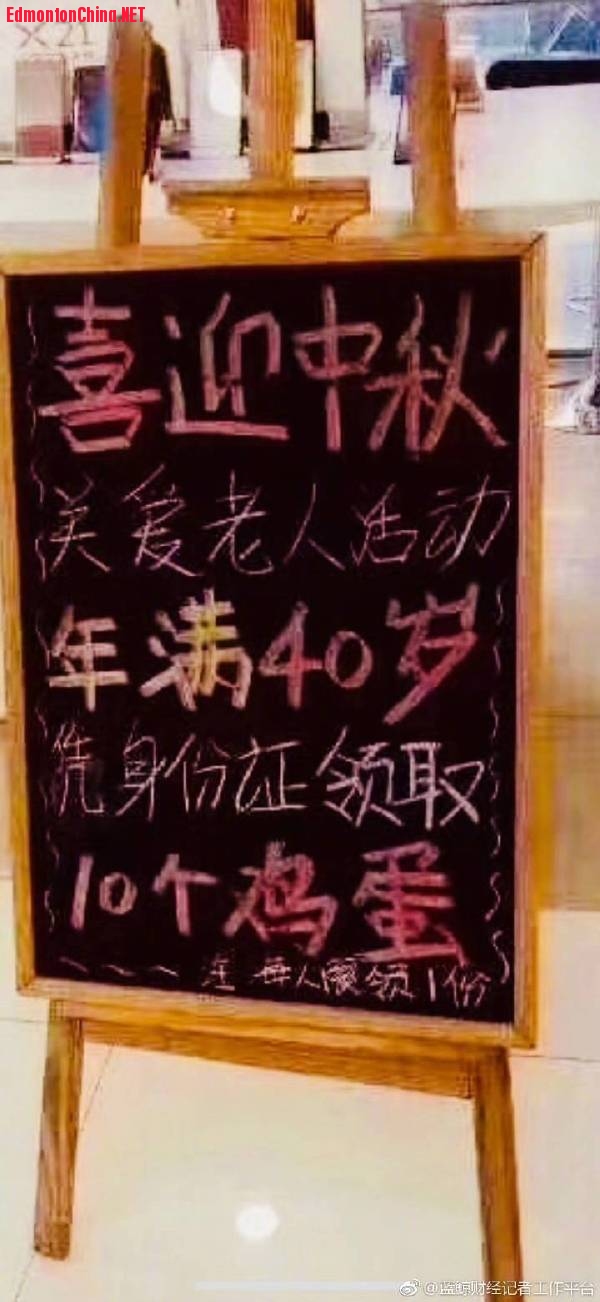 EdmontonChina.NET
喜迎中秋
关爱老人活动
年满40岁
凭身份证领取
10个鸡蛋
~ ~ ~ 注 每人限领1份
@蓝鲸财经记者工作平台